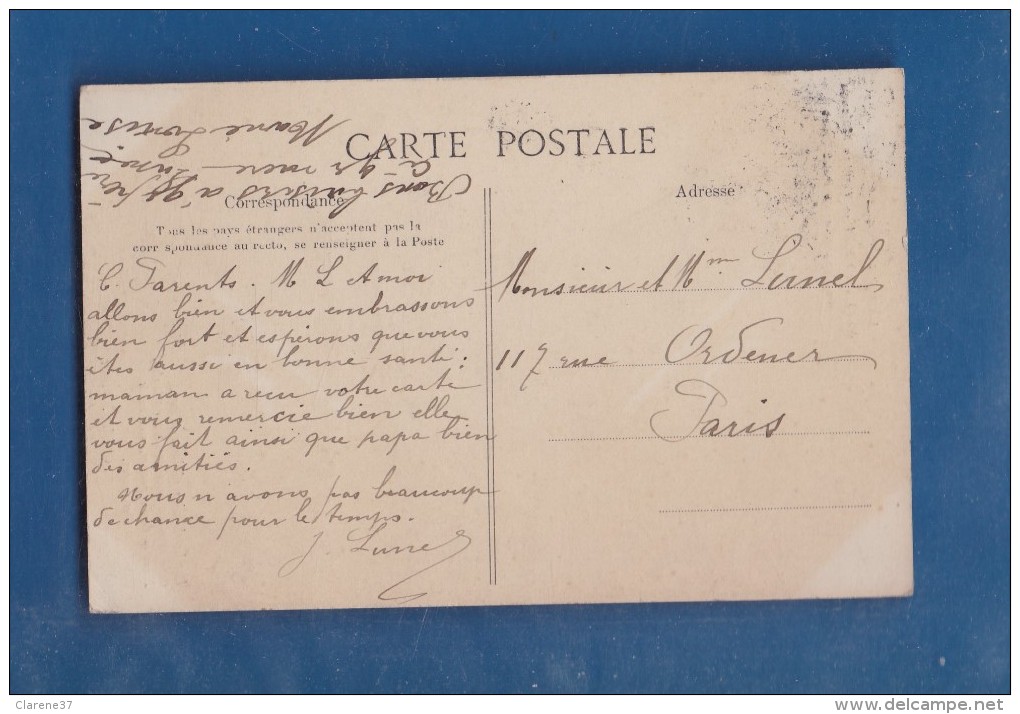 CARTE POSTALE
Correspondance
Tous les pays étrangers n'acceptent pas la
correspondance au recto, se renseigner à la Poste
C. Parents. M L et moi
allons bien et vous embrassons
bien fort et espérons que vous
êtes aussi en bonne santé.
maman a reçu votre carte
et vous remercie bien elle
vous fait ainsi que papa bien
des amitiés.
Nous n avons pas beaucoup
de chance pour le temps.
J. Lunel
Bons baisers à
mère
Marie Louise
Adresse
Monsieur et Mme Lunel
117 rue Ordener
Paris
Clarene37
www.delcampe.net